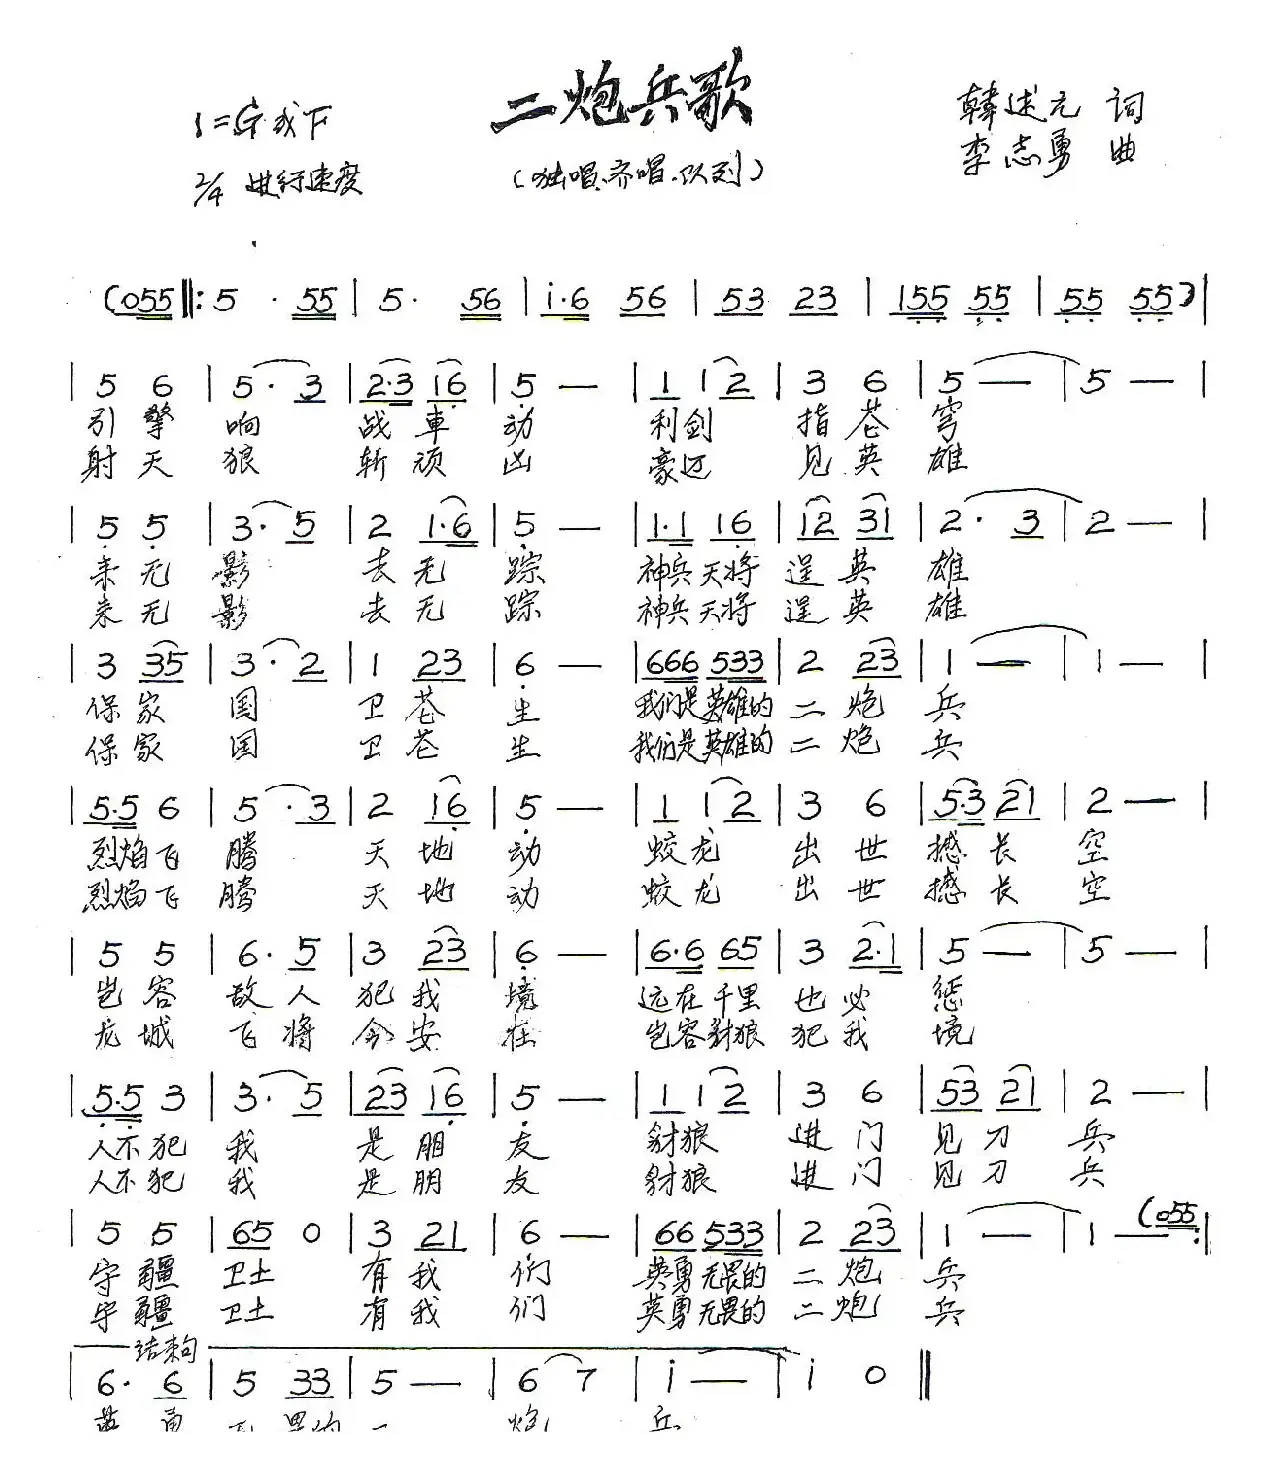 二炮兵歌
1=G或F
韩述元 词
2/4 进行速度
(独唱、齐唱、队列)
李志勇 曲
(055 ‖: 5 · 55 | 5 · 56 | i·6 56 | 53 23 | 155 55 | 55 55) |
| 5 6 | 5 · 3 | 2·3 16 | 5 — | 1 1 2 | 3 6 | 5 — | 5 — |
引擎 响 战車 动 利剑 指苍 穹
射天 狼 斩顽 凶 豪迈 见英 雄
| 5 5 | 3 · 5 | 2 1·6 | 5 — | 1·1 16 | 12 31 | 2 · 3 | 2 — |
来无 影 去无 踪 神兵天将 逞英 雄
来无 影 去无 踪 神兵天将 逞英 雄
| 3 35 | 3 · 2 | 1 23 | 6 — | 666 533 | 2 23 | 1 — | 1 — |
保家 国 卫苍 生 我们是英雄的 二炮 兵
保家 国 卫苍 生 我们是英雄的 二炮 兵
| 5·5 6 | 5 · 3 | 2 16 | 5 — | 1 1 2 | 3 6 | 5·3 21 | 2 — |
烈焰飞 腾 天地 动 蛟龙 出世 撼长 空
烈焰飞 腾 天地 动 蛟龙 出世 撼长 空
| 5 5 | 6 · 5 | 3 23 | 6 — | 6·6 65 | 3 2·1 | 5 — | 5 — |
岂容 敌人 犯我 境 远在千里 也必 惩
龙城 飞将 今安 在 岂容豺狼 犯我 境
| 5·5 3 | 3 · 5 | 23 16 | 5 — | 1 1 2 | 3 6 | 53 21 | 2 — |
人不犯 我 是朋 友 豺狼 进门 见刀 兵
人不犯 我 是朋 友 豺狼 进门 见刀 兵
| 5 5 | 65 0 | 3 21 | 6 — | 66 533 | 2 23 | 1 — | 1 (055 :‖
守疆 卫土 有我 们 英勇无畏的 二炮 兵
守疆 卫土 有我 们 英勇无畏的 二炮 兵
结束句
| 6 · 6 | 5 33 | 5 — | 6 7 | i — | i 0 ‖
英 勇 无 畏的 二 炮 兵